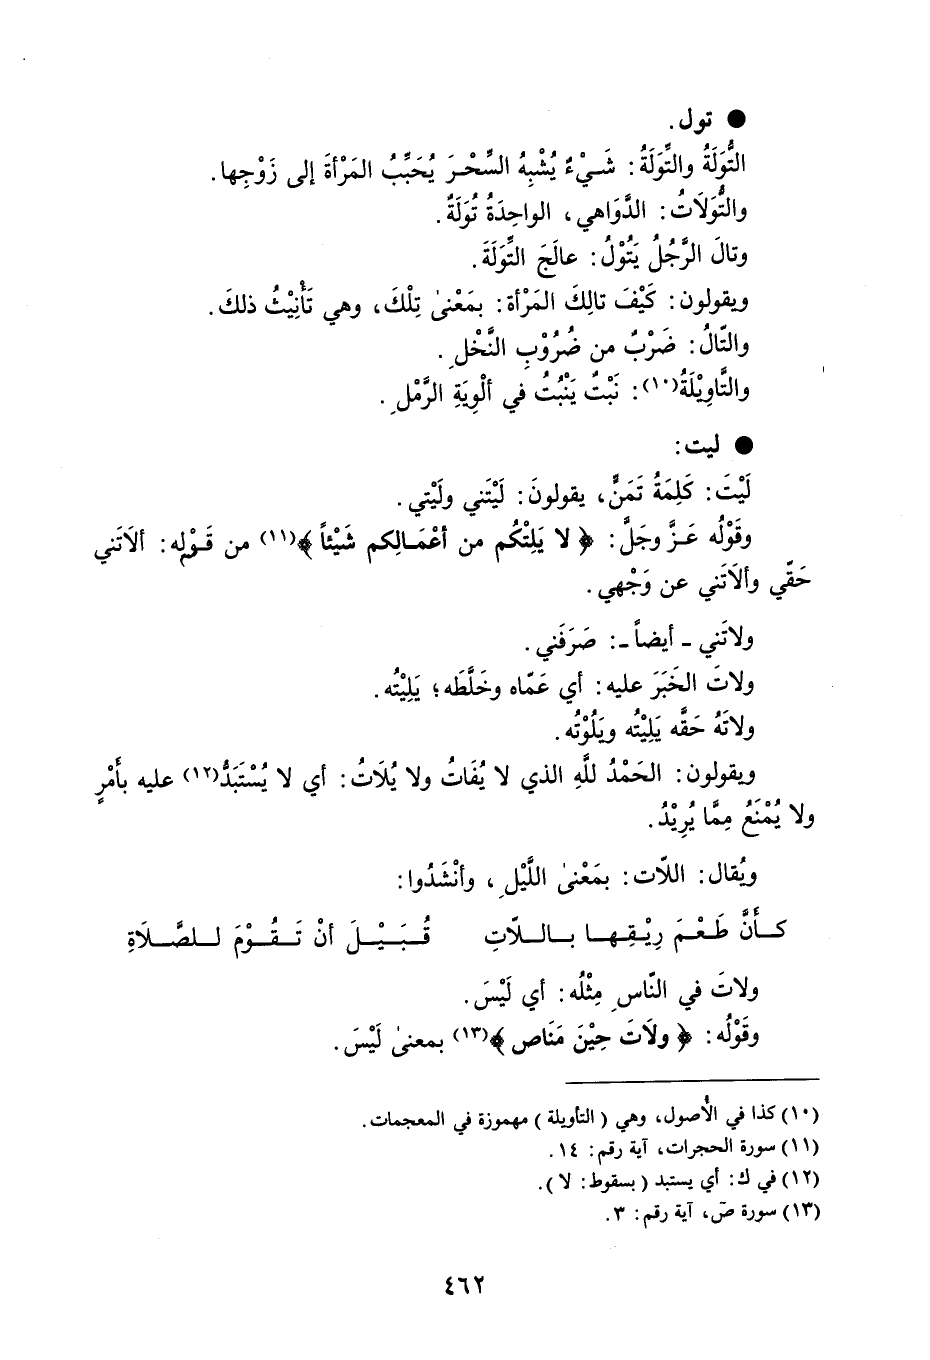 ● تول.
التُّوَلَةُ والتِّوَلَةُ: شَـيْءٌ يُشْبِهُ السِّحْـرَ يُحَبِّبُ المَرْأةَ إلى زَوْجِها.
والتُّوَلَاتُ: الدَّوَاهي، الواحِدَةُ تُوَلَةٌ.
وتالَ الرَّجُلُ يَتُوْلُ: عالَجَ التِّوَلَةَ.
ويقولون: كَيْفَ تالِكَ المَرْأة: بمَعْنىٰ تِلْكَ، وهي تَأْنِيْثُ ذلكَ.
والتّالُ: ضَرْبٌ من ضُرُوْبِ النَّخْلِ.
والتَّاوِيْلَةُ(١٠): نَبْتٌ يَنْبُتُ في ألْوِيَةِ الرَّمْلِ.
● ليت:
لَيْتَ: كَلِمَةُ تَمَنٍّ، يقولونَ: لَيْتَني ولَيْتي.
وقَوْلُه عَـزَّ وجَلَّ: ﴿ لا يَلِتْكُم من أعْمَـالِكم شَيْئاً ﴾(١١) من قَـوْلِه: ألاَتَني
حَقّي وألاَتَني عن وَجْهي.
ولاتَني ـ أيضاً ـ: صَرَفَني.
ولاتَ الخَبَرَ عليه: أي عَمّاه وخَلَّطَه؛ يَلِيْتُه.
ولاتَهُ حَقَّه يَلِيْتُه ويَلُوْتُه.
ويقولون: الحَمْدُ للَّهِ الذي لا يُفَاتُ ولا يُلَاتُ: أي لا يُسْتَبَدُّ(١٢) عليه بأَمْرٍ
ولا يُمْنَعُ مِمَّا يُرِيْدُ.
ويُقال: اللاّت: بمَعْنىٰ اللَّيْلِ، وأنْشَدُوا:
كـأنَّ طَـعْـمَ رِيْـقِـهـا بـالـلاّتِ قُـبَـيْـلَ أنْ تَـقُـوْمَ لـلصَّـلاَةِ
ولاتَ في النّاسِ مِثْلُه: أي لَيْسَ.
وقَوْلُه: ﴿ ولَاتَ حِيْنَ مَنَاص ﴾(١٣) بمعنىٰ لَيْسَ.
(١٠) كذا في الأُصول، وهي ( التأويلة ) مهموزة في المعجمات.
(١١) سورة الحجرات، آية رقم: ١٤.
(١٢) في ك: أي يستبد ( بسقوط: لا ).
(١٣) سورة صۤ، آية رقم: ٣.
٤٦٢